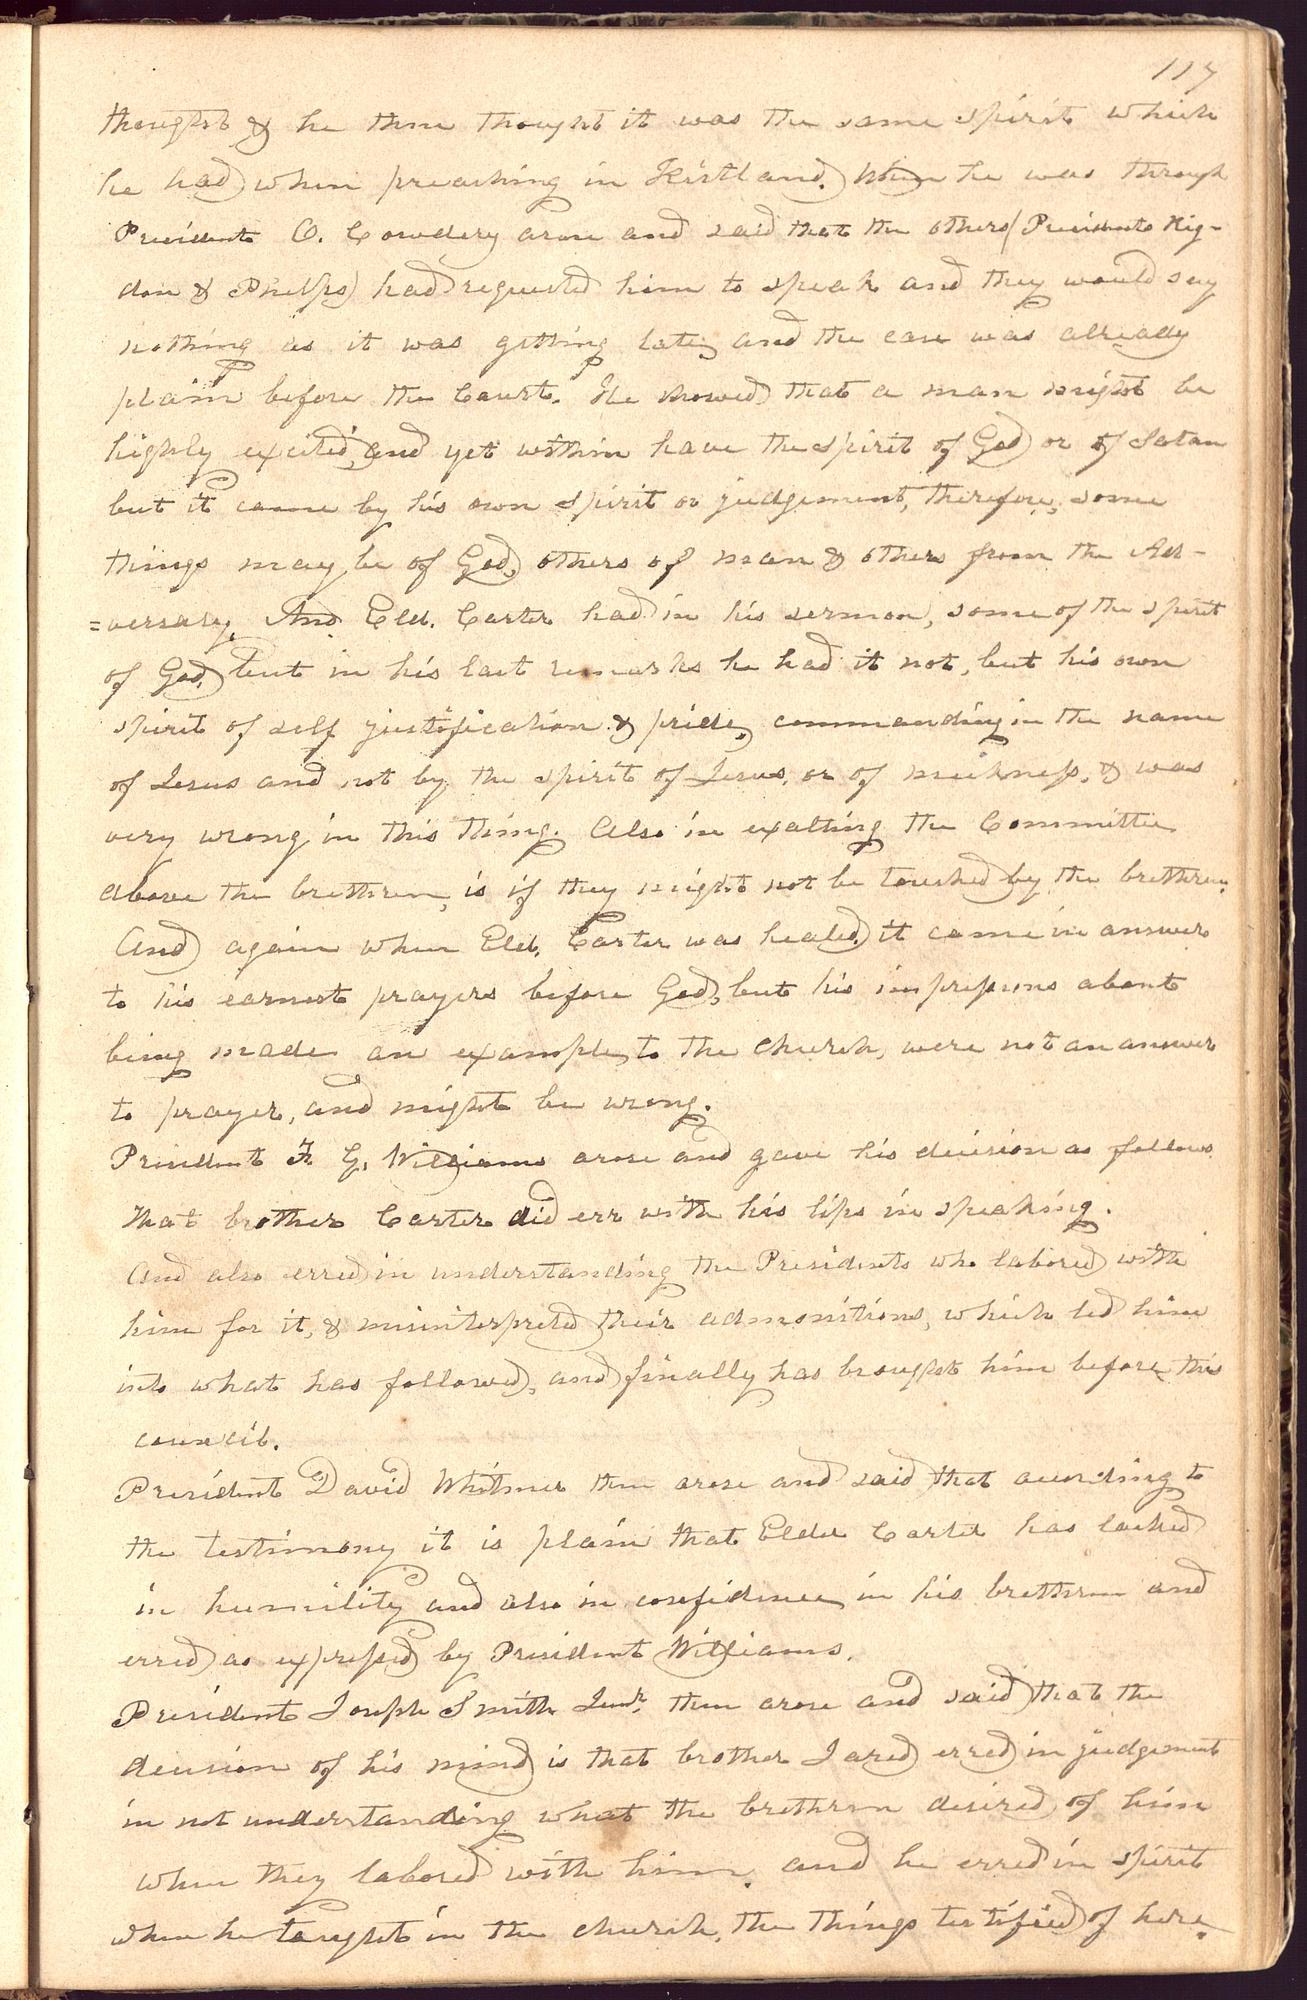 117
thought & he then thought it was the same spirit which
he had when preaching in Kirtland. When he was through
President O. Cowdery arose and said that the others (Presidents Rig-
don & Phelps) had requested him to speak and they would say
nothing as it was getting late, and the case was already
plain before the Court. He showed that a man might be
highly excited, and yet within have the spirit of God or of Satan
but it came by his own spirit or judgement, therefore, some
things may be of God, others of man & others from the Ad-
=versary. And Eld. Carter had in his sermon, some of the spirit
of God, but in his last remarks he had it not, but his own
spirit of self justification & pride, commanding in the name
of Jesus and not by the spirit of Jesus, or of meekness, & was
very wrong in this thing. Also in exalting the Committee
above the brethren, is if they might not be touched by the brethren.
And again when Eld. Carter was healed, it came in answer
to his earnest prayers before God, but his impressions about
being made an example, to the church, were not an answer
to prayer, and might be wrong.
President F. G. Williams arose and gave his decision as follows
that brother Carter did err with his lips in speaking.
And also erred in understanding the Presidents who labored with
him for it, & misinterpreted their admonitions, which led him
into what has followed, and finally has brought him before this
council.
President David Whitmer then arose and said that according to
the testimony it is plain that Elder Carter has lacked
in humility and also in confidence, in his brethren and
erred as expressed by President Williams.
President Joseph Smith Junr. then arose and said that the
decision of his mind is that brother Jared erred in judgement
in not understanding what the brethren desired of him
when they labored with him, and he erred in spirit
when he taught in the church, the things testified of here.